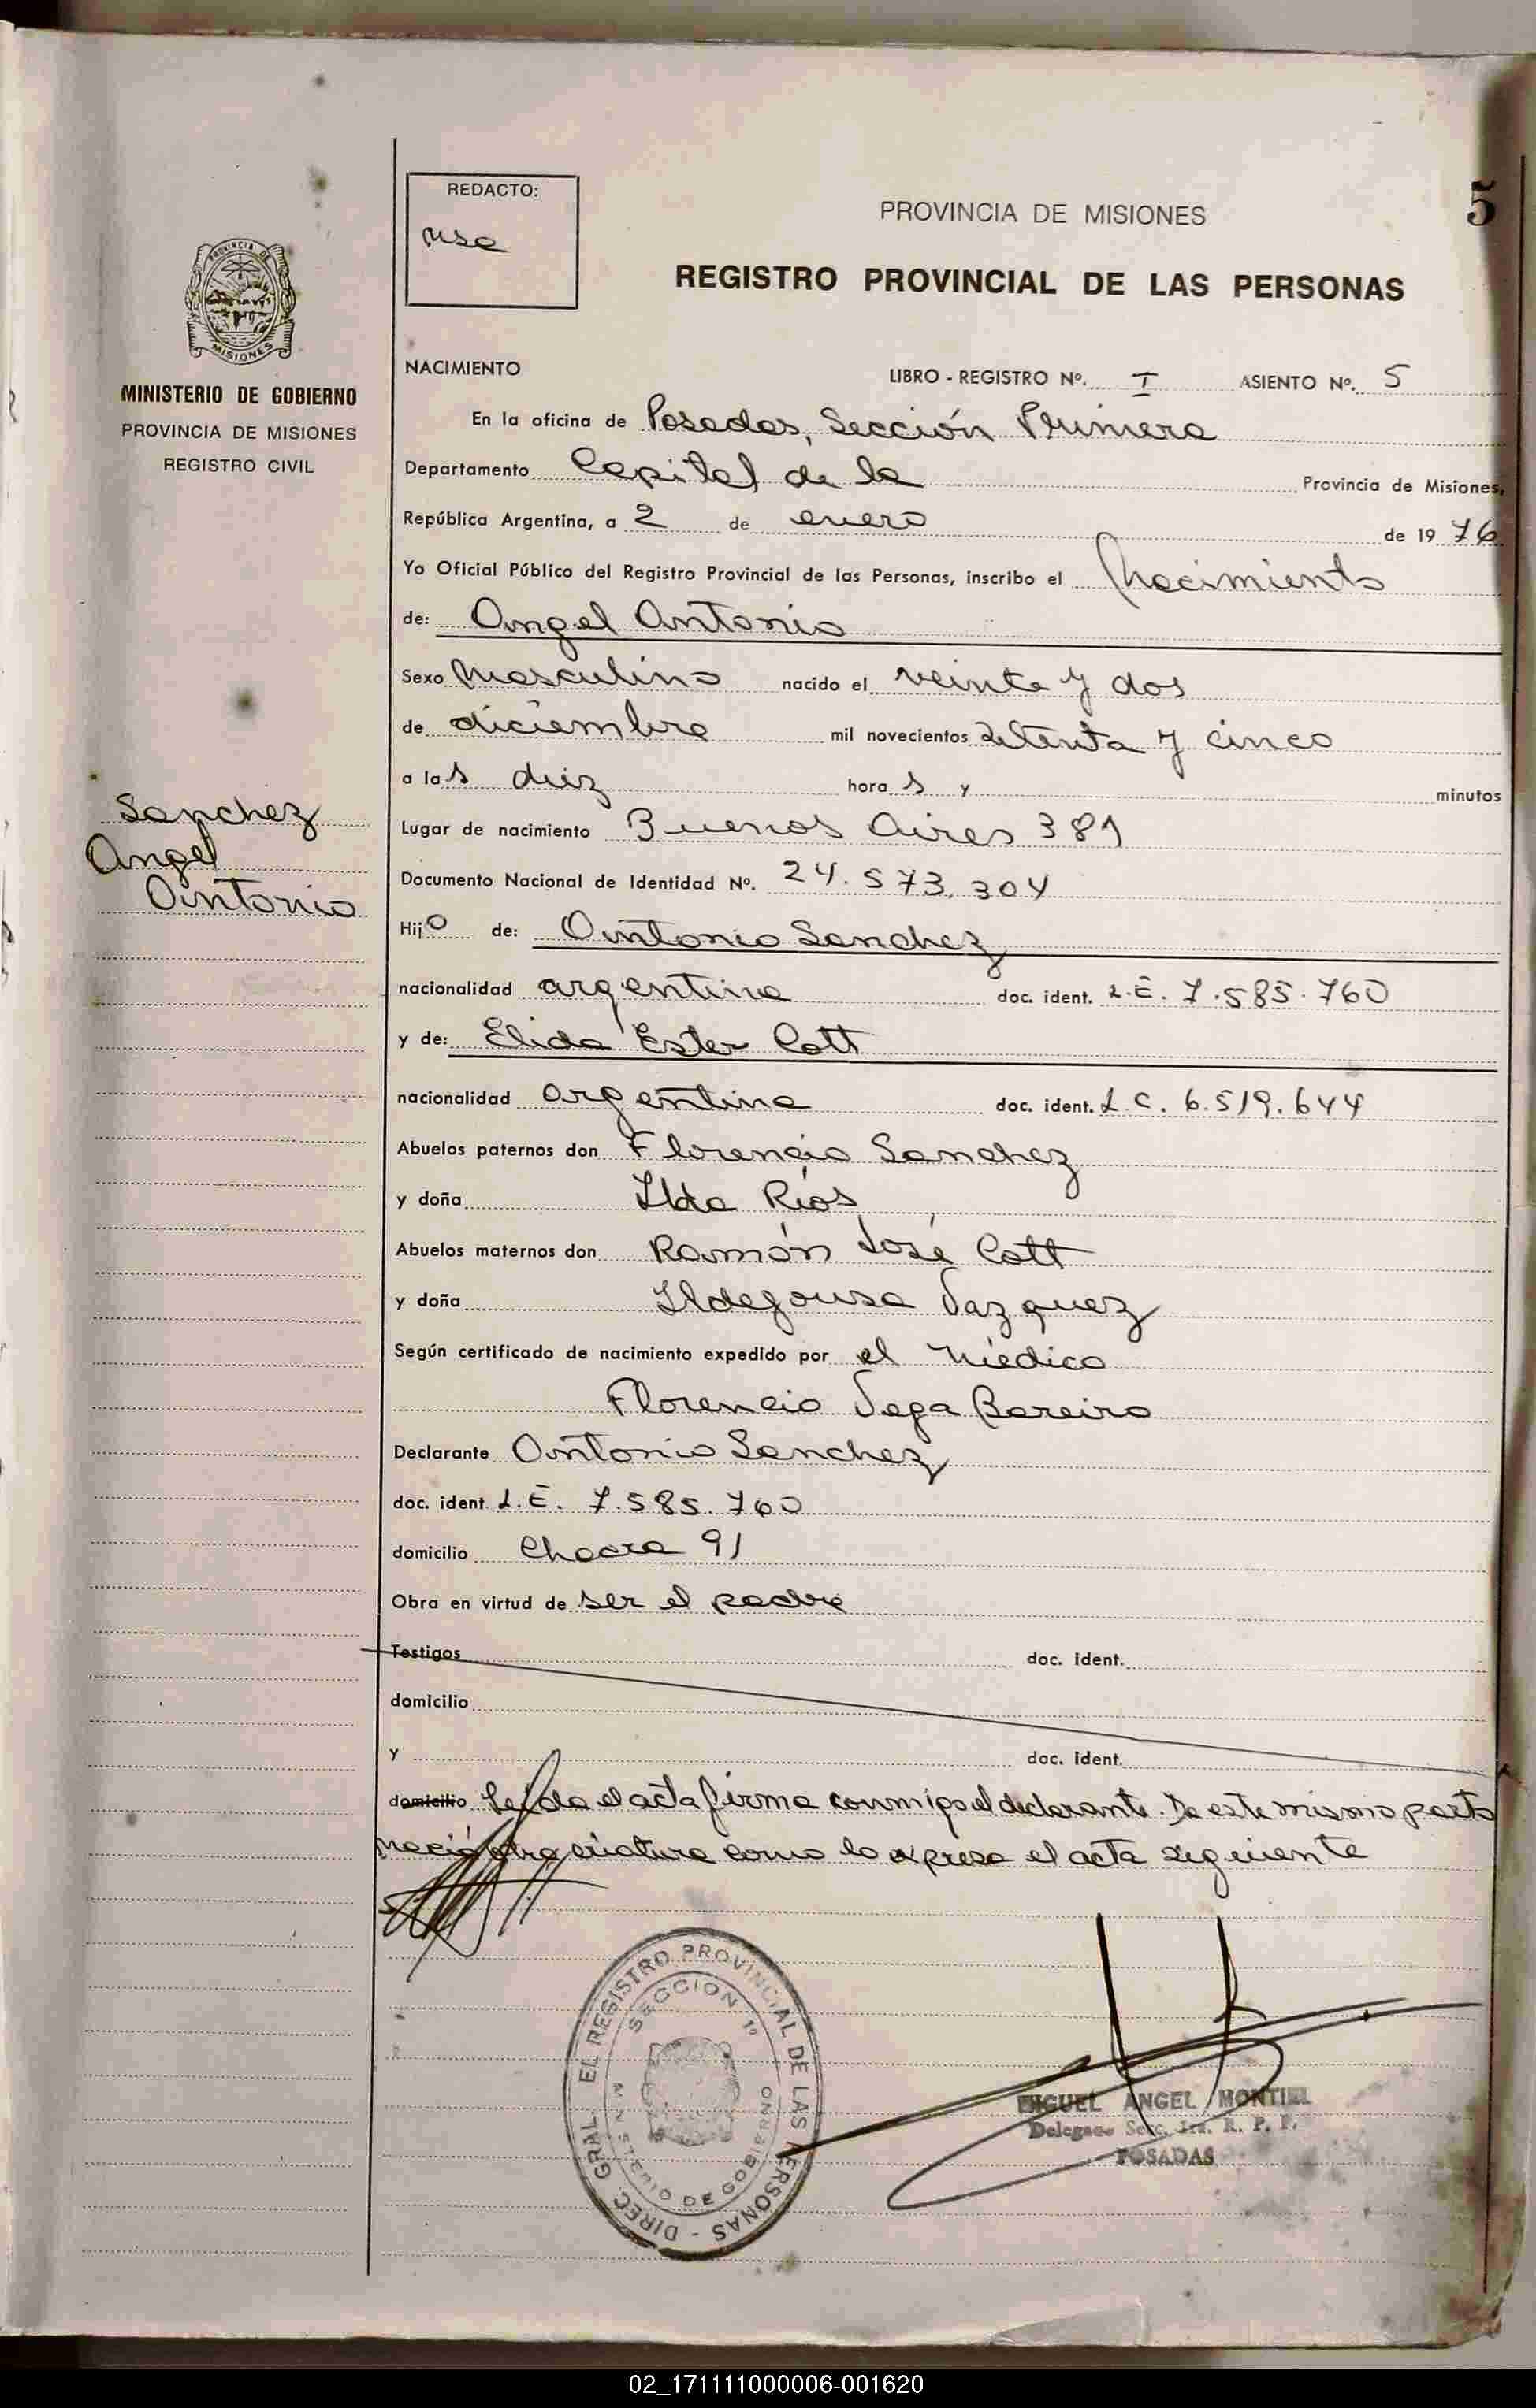 REDACTO:
PROVINCIA DE MISIONES
5
REGISTRO PROVINCIAL DE LAS PERSONAS
PROVINCIA DE
MISIONES
MINISTERIO DE GOBIERNO
PROVINCIA DE MISIONES
REGISTRO CIVIL
NACIMIENTO
LIBRO - REGISTRO Nº. I ASIENTO Nº. 5
En la oficina de Posadas, Sección Primera
Departamento Capital de la Provincia de Misiones,
República Argentina, a 2 de enero de 1976
Yo Oficial Público del Registro Provincial de las Personas, inscribo el Nacimiento
de: Angel Antonio
Sexo Masculino nacido el veinte y dos
de diciembre mil novecientos setenta y cinco
a las diez horas y minutos
Sanchez
Angel
Antonio
Lugar de nacimiento Buenos Aires 381
Documento Nacional de Identidad Nº. 24.573.304
Hijo de: Antonio Sanchez
nacionalidad argentina doc. ident. L.E. 7.585.760
y de: Elida Ester Cott
nacionalidad argentina doc. ident. L.C. 6.519.644
Abuelos paternos don Florencio Sanchez
y doña Ilda Ríos
Abuelos maternos don Ramón José Cott
y doña Ildefonsa Vazquez
Según certificado de nacimiento expedido por el médico
Florencio Vega Bareiro
Declarante Antonio Sanchez
doc. ident. L.E. 7.585.760
domicilio Chacra 91
Obra en virtud de ser el padre
Testigos doc. ident.
domicilio
y doc. ident.
domicilio Leída el acta firma conmigo el declarante. De este mismo parto
nació otra criatura como lo expresa el acta siguiente
DIREC. GRAL. EL REGISTRO PROVINCIAL DE LAS PERSONAS -
SECCION 1º
MINISTERIO DE GOBIERNO
MIGUEL ANGEL MONTIEL
Delegado Secc. 1ra. R. P. P.
POSADAS
02_171111000006-001620